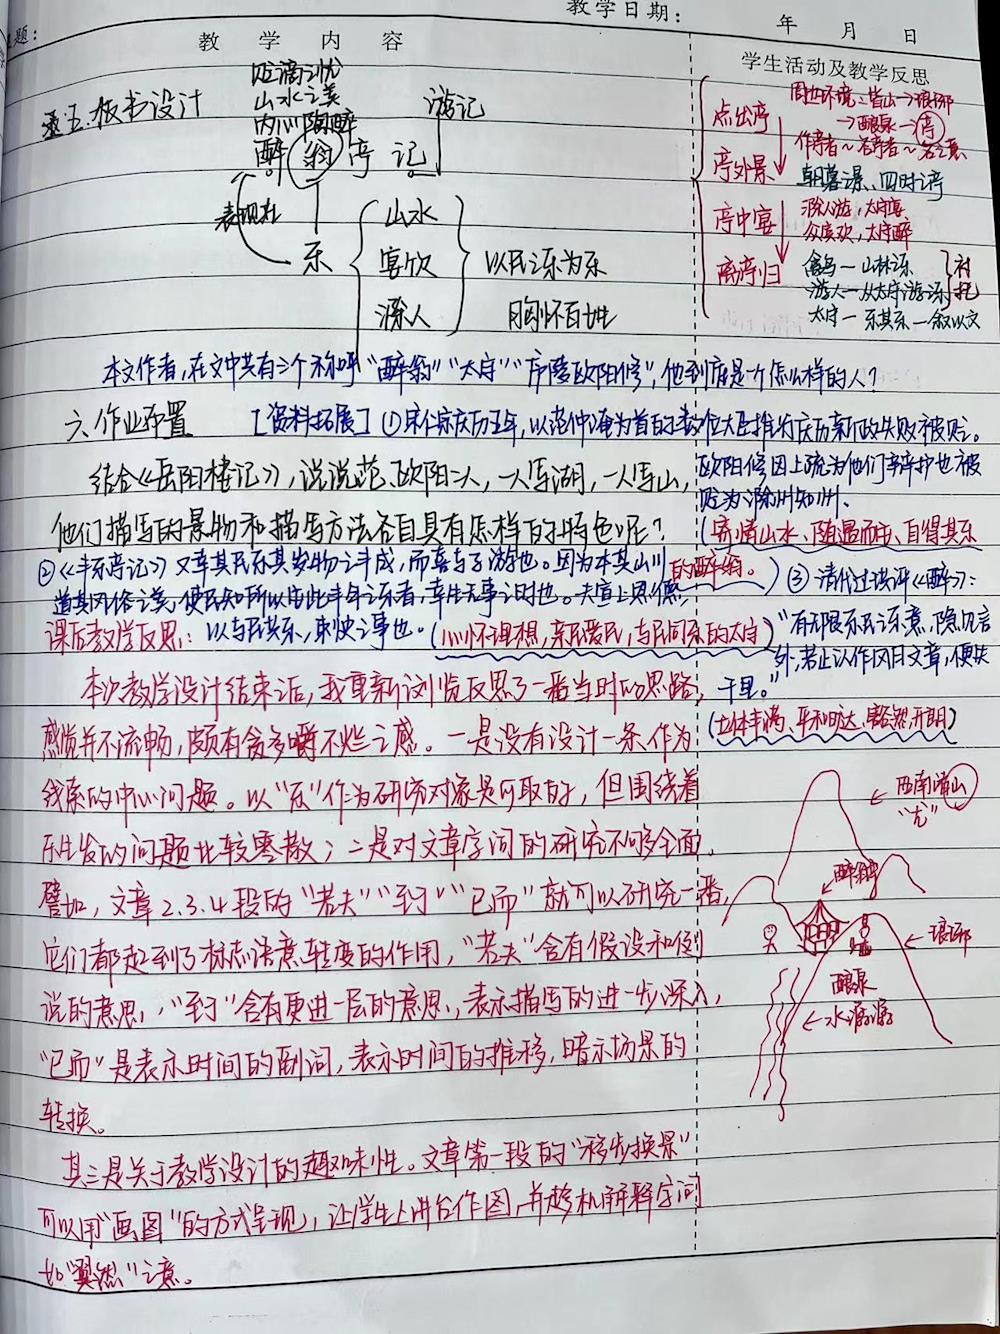 教学日期：
年 月 日
题：
教 学 内 容
学生活动及教学反思
五、板书设计
贬谪之忧
山水之美
内心陶醉
醉翁亭记
游记
表现在
乐
山水
宴饮
滁人
以民之乐为乐
胸怀百姓
点出亭
亭外景
亭中宴
离亭归
周边环境：皆山→琅琊
→酿泉→亭
作亭者~名亭者~名之意
朝暮之景、四时之景
滁人游，太守宴
众宾欢，太守醉
禽鸟—山林乐
游人—从太守游乐
太守—乐其乐—叙以文
衬托
本文作者，在文中共有三个称呼“醉翁”“太守”“庐陵欧阳修”，他到底是一个怎么样的人？
六、作业布置
[资料拓展]①宋仁宗庆历五年，以范仲淹为首的数位大臣推行庆历新政失败被贬。
欧阳修因上疏为他们辩护也被
贬为滁州知州。
(寄情山水、随遇而安、自得其乐
的醉翁。)
结合《岳阳楼记》，说说范、欧阳二人，一人写湖，一人写山，
他们描写的景物和描写方法各自具有怎样的特色呢？
②《丰乐亭记》又幸其民乐其岁物之丰成，而喜与予游也。因为本其山川
道其风俗之美，使民知所以安此丰年之乐者，幸生无事之时也。夫宣上恩德，
以与民共乐，刺史之事也。(心怀理想，亲民爱民，与民同乐的太守)
③清代过珙评《醉》：
“有无限乐民之乐意，隐见言
外，若止认作风月文章，便失
千里。”
(立体丰满、平和旷达、豁然开朗)
课后教学反思：
本次教学设计结束之后，我重新浏览反思了一番当时的思路，
感觉并不流畅，颇有贪多嚼不烂之感。一是没有设计一条作为
线索的中心问题。以“乐”作为研究对象是可取的，但围绕着
乐生发的问题比较零散；二是对文章字词的研究不够全面。
譬如，文章2.3.4段的“若夫”“至于”“已而”就可以研究一番，
它们都起到了标志语意转度的作用，“若夫”含有假设和例
说的意思，“至于”含有更进一层的意思，表示描写的进一步深入，
“已而”是表示时间的副词，表示时间的推移，暗示场景的
转换。
其三是关于教学设计的趣味性。文章第一段的“移步换景”
可以用“画图”的方式呈现，让学生上讲台作图，并趁机解释字词
如“翼然”之意。
西南诸山
“尤”
醉翁亭
琅琊
酿泉
水潺潺